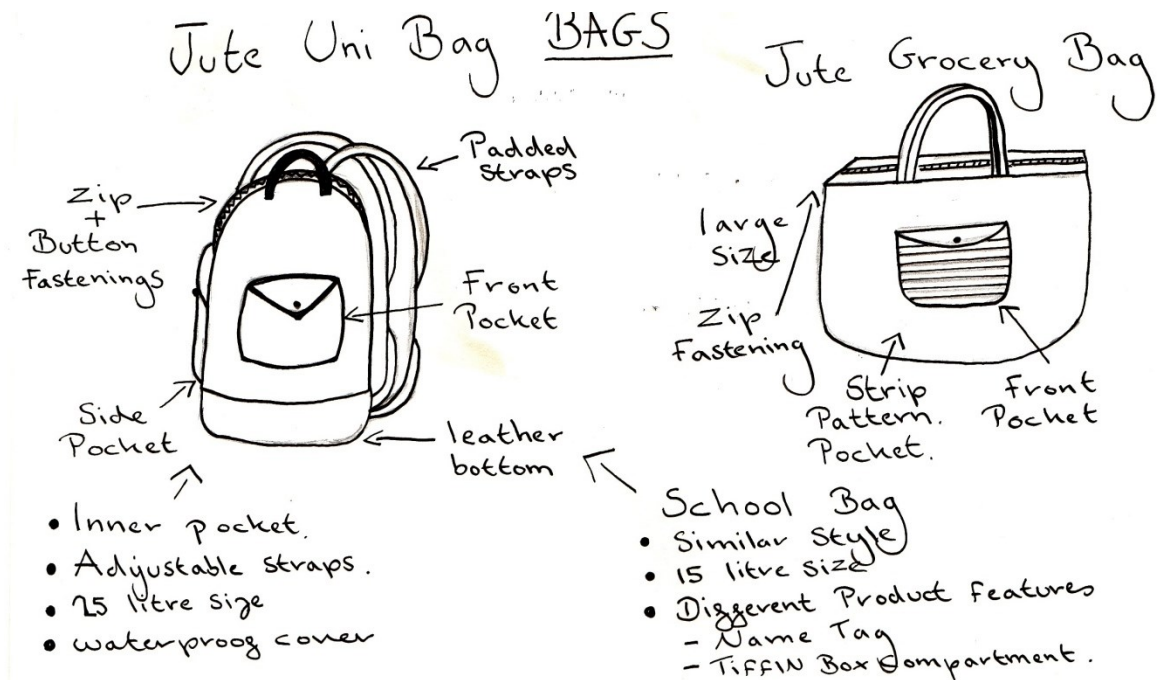 Jute Uni Bag
BAGS
Jute Grocery Bag
Padded
Straps
Zip
+
Button
Fastenings
Front
Pocket
Side
Pocket
leather
bottom
• Inner pocket.
• Adjustable straps.
• 25 litre size
• waterproof cover
large
Size
Zip
Fastening
Strip
Pattern.
Pocket.
Front
Pocket
School Bag
• Similar Style
• 15 litre size
• Different Product Features
- Name Tag
- TIFFIN Box Compartment.